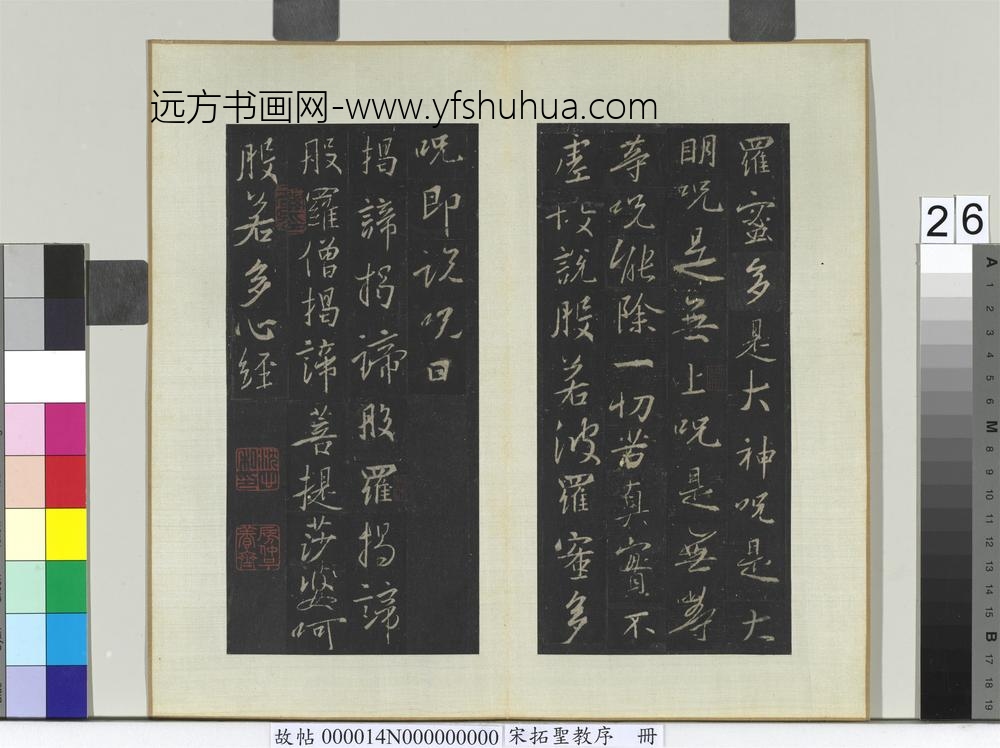 远方书画网-www.yfshuhua.com
羅蜜多是大神呪是大
明呪是無上呪是無等
等呪能除一切苦真實不
虛故說般若波羅蜜多
呪即說呪曰
揭諦揭諦般羅揭諦
般羅僧揭諦菩提莎婆呵
般若多心經
26
A 1 2 3 4 5 6 M 8 9 10 11 12 13 14 15 B 17 18 19
故帖 000014N000000000 宋拓聖教序 冊